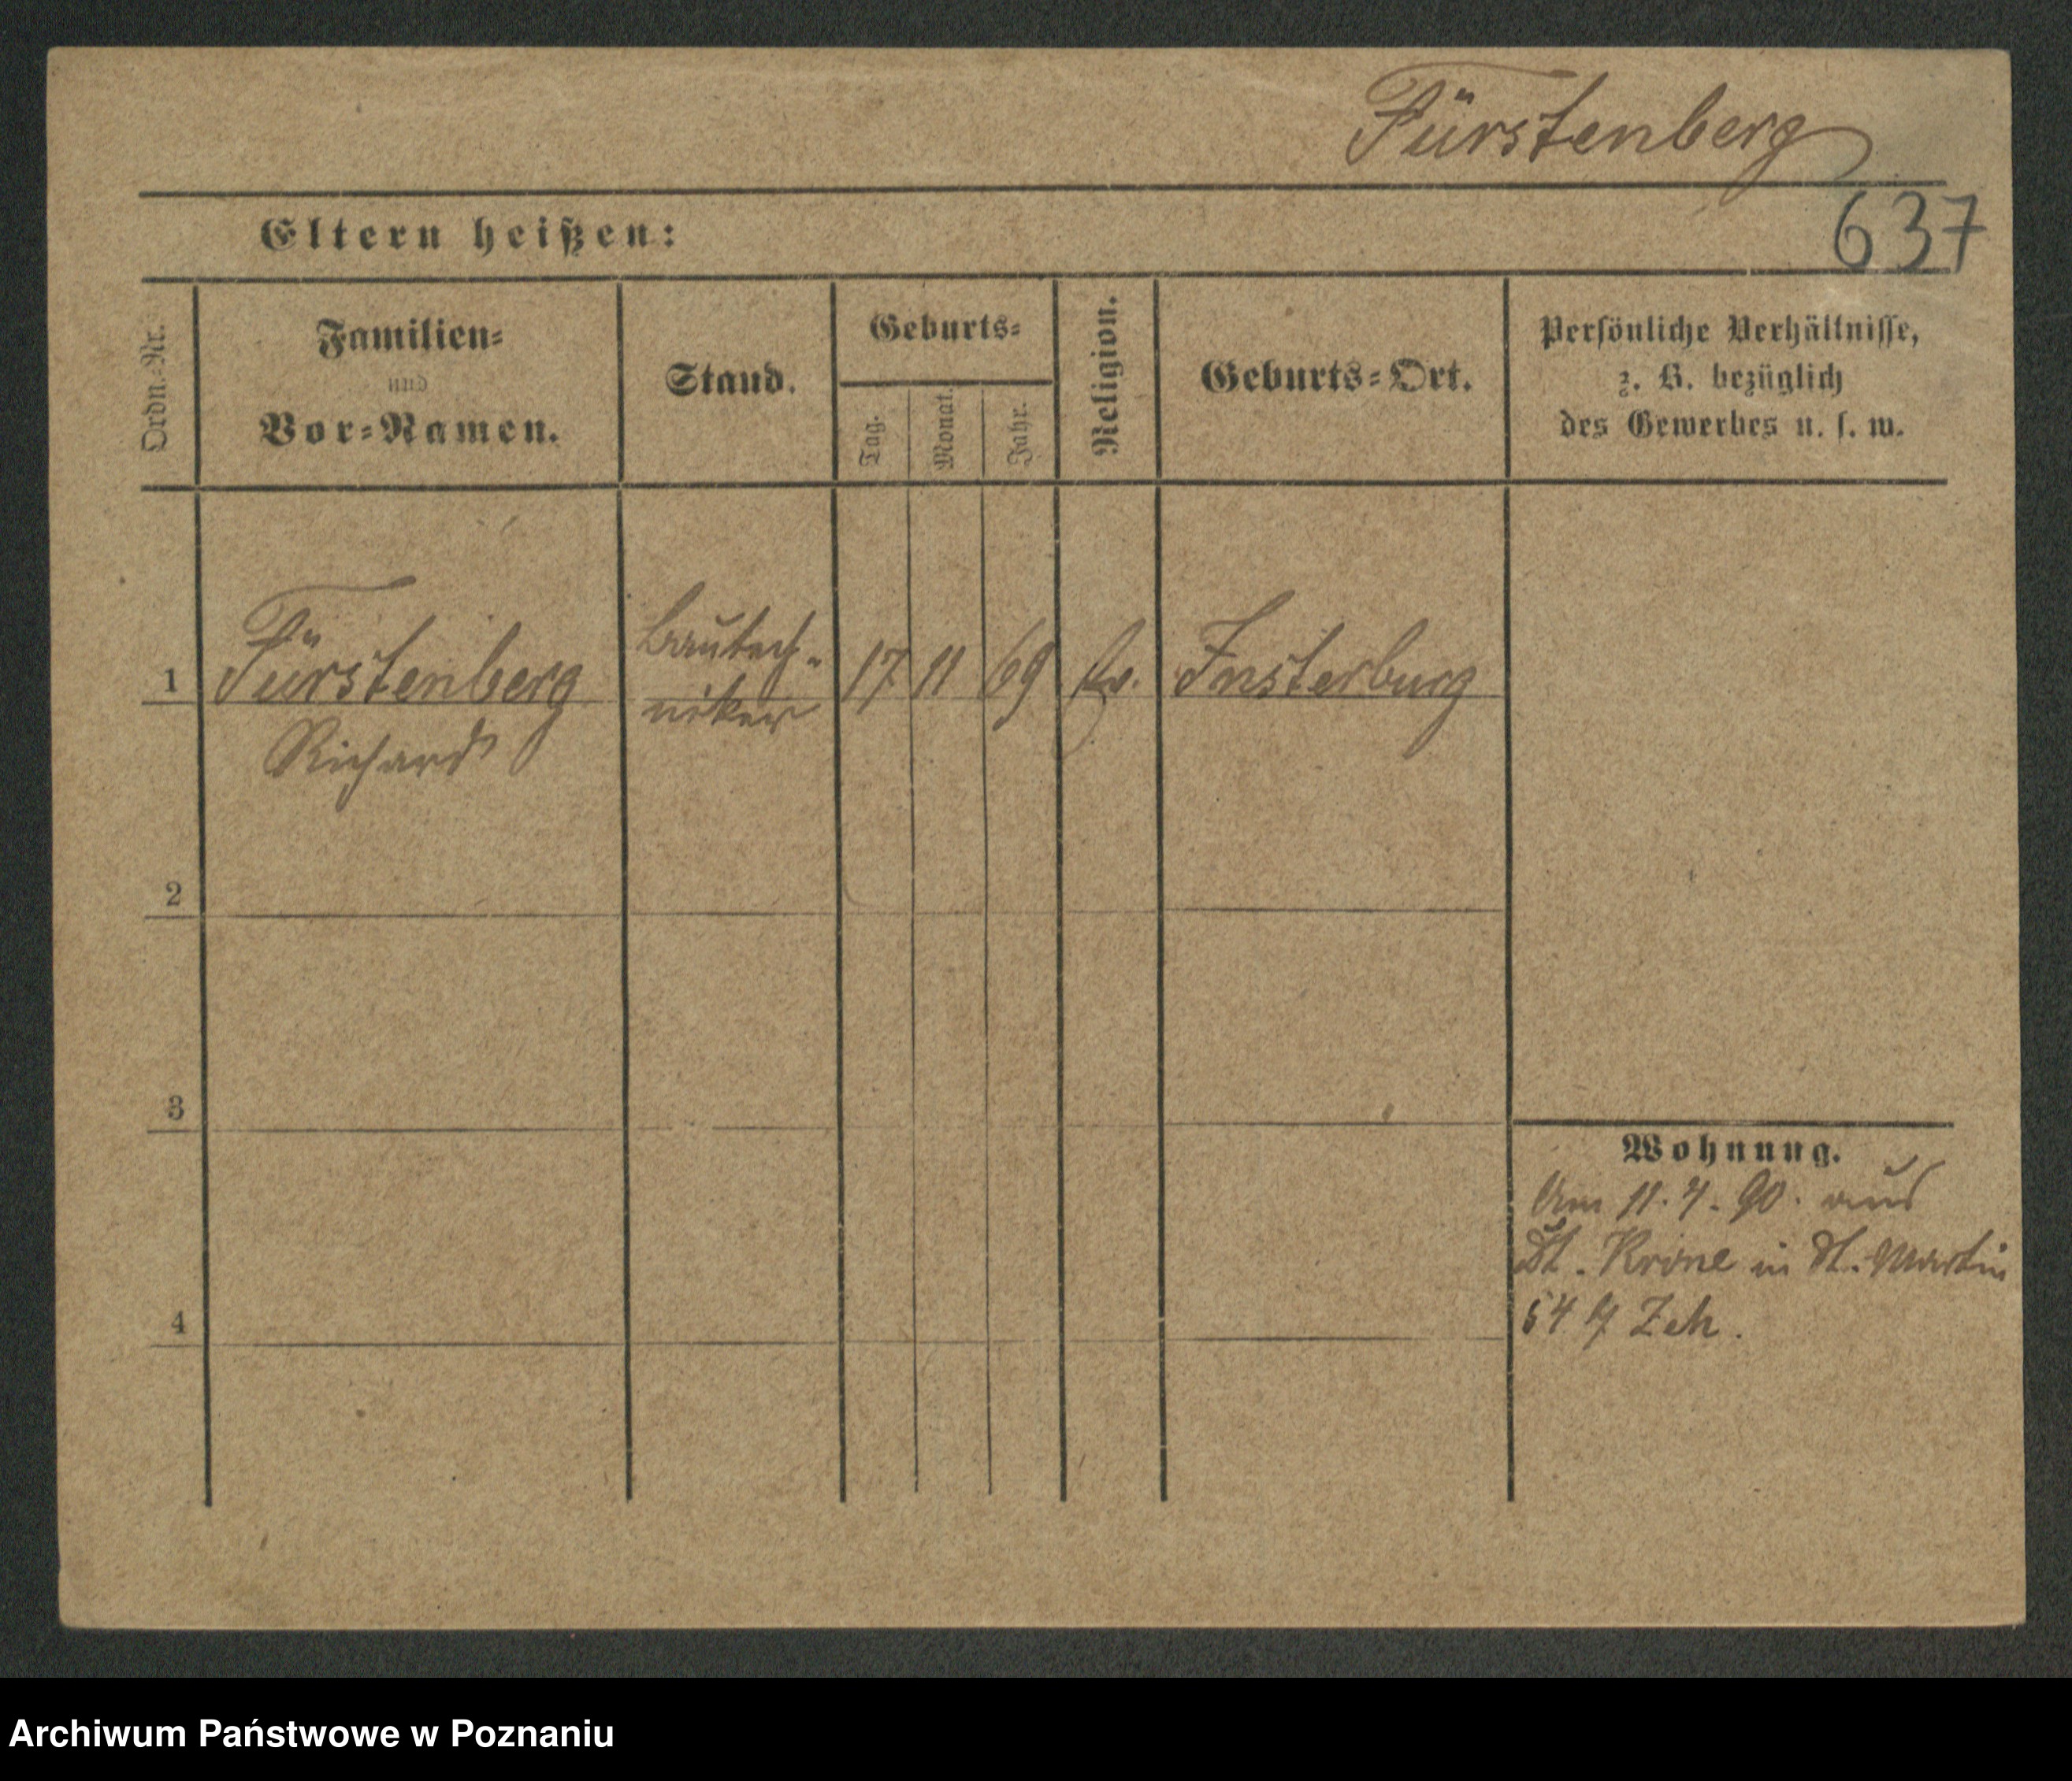 Fürstenberg
637
Eltern heißen:
Ordn.-Nr.
Familien-
und
Vor-Namen.
Stand.
Geburts-
Tag.
Monat.
Jahr.
Religion.
Geburts-Ort.
Persönliche Verhältnisse,
z. B. bezüglich
des Gewerbes u. s. w.
1 Fürstenberg
Richard
Bautech-
niker
17 11 69
Insterburg
2
3
4
Wohnung.
Am 11. 7. 90. aus
Dt. Krone in St. Martin
54 Zeh.
Archiwum Państwowe w Poznaniu